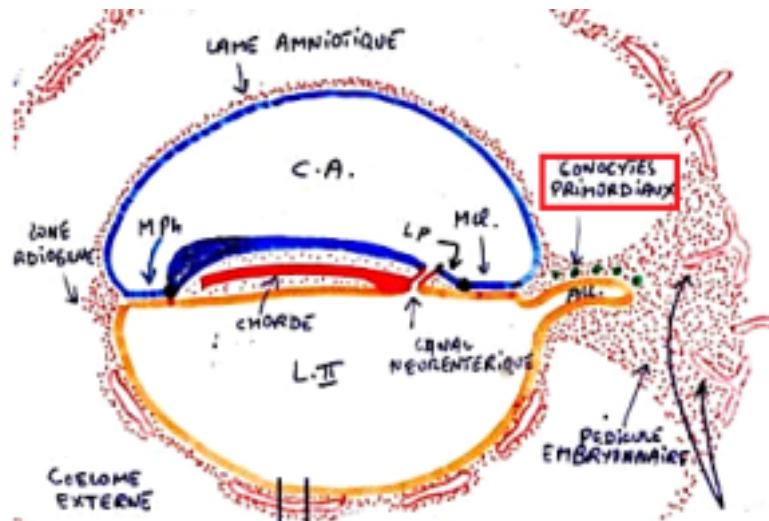 LAME AMNIOTIQUE
C.A.
GONOCYTES
PRIMORDIAUX
ZONE
MPh
LP
Mcl.
ALL.
CHORDE
CANAL
NEURENTERIQUE
L.II
PEDICULE
EMBRYONNAIRE
COELOME
EXTERNE